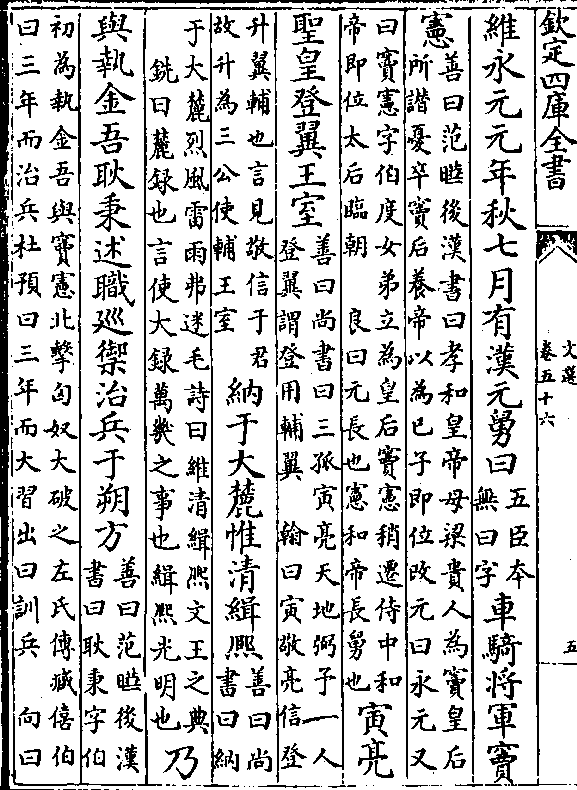 欽定四庫全書
文選
卷五十六
五
維永元元年秋七月有漢元舅曰
五臣本
無曰字
車騎將軍竇
憲
善曰范曄後漢書曰孝和皇帝母梁貴人為竇皇后
所譖憂卒竇后養帝以為已子即位改元曰永元又
曰竇憲字伯度女弟立為皇后竇憲稍遷侍中和
帝即位太后臨朝 良曰元長也憲和帝長舅也
寅亮
聖皇登翼王室
善曰尚書曰三孤寅亮天地弼子一人
登翼謂登用輔翼 翰曰寅敬亮信登
升翼輔也言見敬信于君
故升為三公使輔王室
納于大麓惟清緝熈
善曰尚
書曰納
于大麓烈風雷雨弗迷毛詩曰維清緝熈文王之典
銑曰麓録也言使大録萬幾之事也緝熈光明也
乃
與執金吾耿秉述職廵禦治兵于朔方
善曰范曄後漢
書曰耿秉字伯
初為執金吾與竇憲北擊匈奴大破之左氏傳臧僖伯
曰三年而治兵杜預曰三年而大習出曰訓兵 向曰